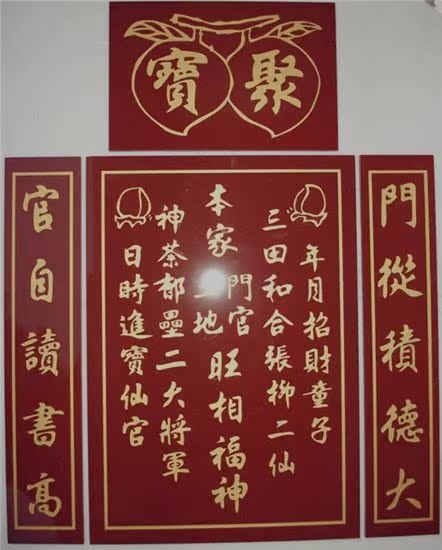 聚寶
門從積德大
年月招財童子
三田和合張柳二仙
本家門官土地旺相福神
神荼都壘二大將軍
日時進寶仙官
官自讀書高